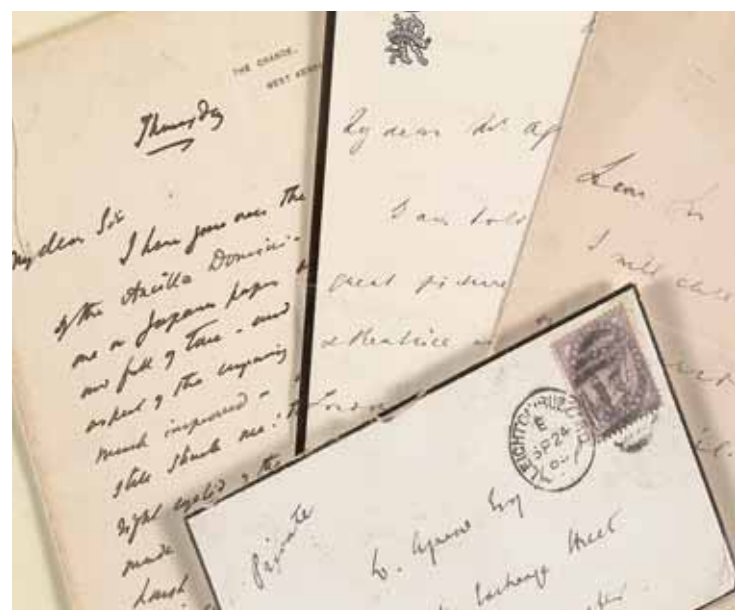 THE GRANGE,
WEST KENS
Thursday
My dear Sir
I have gone over the
of the Ancilla Domini -
one on Japanese paper
and full of tone - and
aspect of the engraving
much improved -
still struck me:
right eyelid of the
made
harsh
My dear Mr Ag
I am told
great picture
& Beatrice
Dear Sir
I will
LEIGHTON BUZZARD
E
SP 24
Private
W. Agnew Esq
Exchange Street